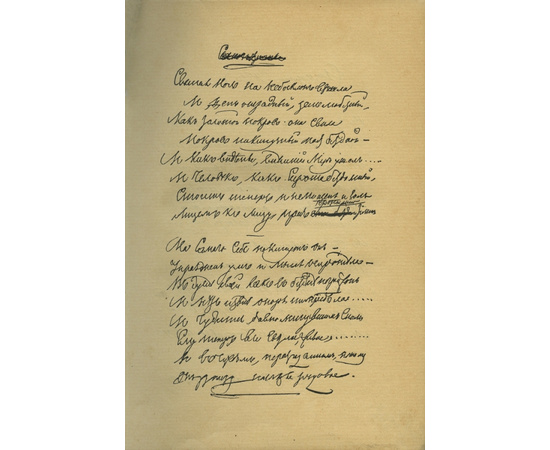 Святая ночь на небосклонъ взошла
И день отрадный, день любезный,
Какъ золотой покровъ она свила
Покровъ накинутый надъ бездной —
И какъ видѣнье, внѣшній міръ ушелъ....
И человѣкъ, какъ сирота бездомный,
Стоитъ теперь и немощенъ и голъ
Лицемъ къ лицу предъ пропастію
На самого себя покинутъ онъ —
Упраздненъ умъ и мысль осиротѣла —
Въ душѣ своей какъ въ безднѣ погруженъ
И нѣтъ извнѣ опоры ни предѣла......
И чудится давно минувшимъ сномъ
Ему теперь все свѣтлое живое
И въ чуждомъ, неразгаданномъ, ночномъ
Онъ узнаетъ наслѣдье родовое.